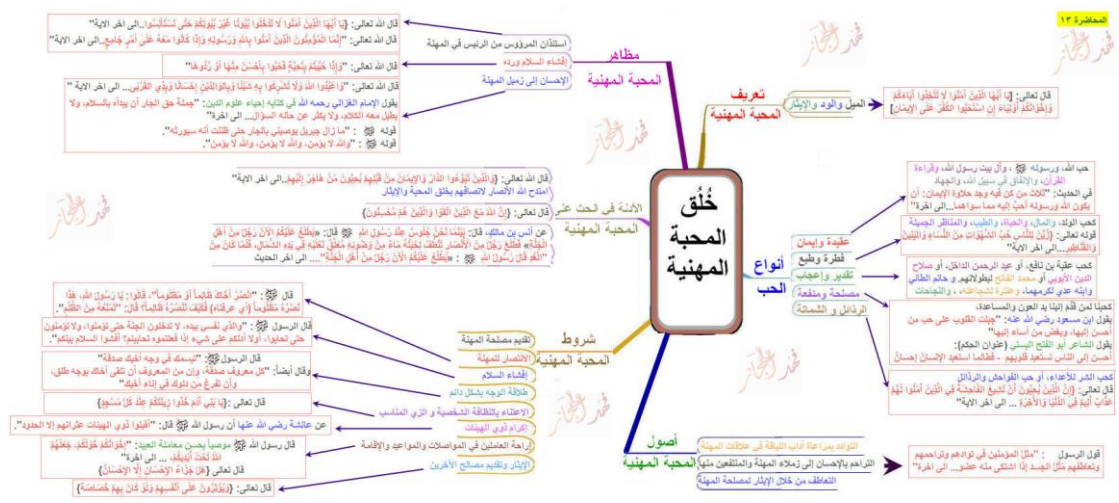 المحاضرة ١٣
خُلُق
المحبة
المهنية
تعريف
المحبة المهنية
الميل والود والإيثار
قال تعالى: {يَا أَيُّهَا الَّذِينَ آمَنُوا لَا تَتَّخِذُوا آبَاءَكُمْ
وَإِخْوَانَكُمْ أَوْلِيَاءَ إِنِ اسْتَحَبُّوا الْكُفْرَ عَلَى الْإِيمَانِ}
أنواع
الحب
عقيدة وإيمان
فطرة وطبع
تقدير وإعجاب
مصلحة ومنفعة
الرذائل و الشماتة
حب الله، ورسوله ﷺ ، وآل بيت رسول الله، وقراءة
القرآن، والإنفاق في سبيل الله، والجهاد
في الحديث: "ثلاث من كن فيه وجد حلاوة الإيمان: أن
يكون الله ورسوله أحب إليه مما سواهما...الى اخرة"
كحب الولد، والمال، والحياة، والطيب، والمناظر الجميلة
قوله تعالى: {زُيِّنَ لِلنَّاسِ حُبُّ الشَّهَوَاتِ مِنَ النِّسَاءِ وَالْبَنِينَ
وَالْقَنَاطِيرِ...الى اخر الاية"
كحب عقبة بن نافع، أو عبد الرحمن الداخل، أو صلاح
الدين الأيوبي أو محمد الفاتح لبطولاتهم, و حاتم الطائي
وابنه عدي لكرمهما، وعنترة لشجاعته ، والنجاحات
كحبنا لمن قدَّم إلينا يد العون والمساعدة،
يقول ابن مسعود رضي الله عنه: "جبلت القلوب على حب من
أحسن إليها، وبغض من أساء إليها"
يقول الشاعر أبو الفتح البستي (عنوان الحكم):
أحسن إلى الناس تستعبد قلوبهم - فطالما استعبد الإنسانَ إحسانُ
كحب الشر للأعداء، أو حب الفواحش والرذائل
قال تعالى: {إِنَّ الَّذِينَ يُحِبُّونَ أَنْ تَشِيعَ الْفَاحِشَةُ فِي الَّذِينَ آمَنُوا لَهُمْ
عَذَابٌ أَلِيمٌ فِي الدُّنْيَا وَالْآخِرَةِ ... الى اخر الاية"
أصول
المحبة المهنية
التوادد بمراعاة آداب اللياقة في علاقات المهنة
التراحم بالإحسان إلى زملاء المهنة والمنتفعين منها
التعاطف من خلال الإيثار لمصلحة المهنة
قول الرسول : "مثل المؤمنين في توادهم وتراحمهم
وتعاطفهم مَثَلُ الجسد إذا اشتكى منه عضو... الى اخرة"
مظاهر
المحبة المهنية
استئذان المرؤوس من الرئيس في المهنة
إفشاء السلام ورده
الإحسان إلى زميل المهنة
قال الله تعالى: {يَا أَيُّهَا الَّذِينَ آمَنُوا لَا تَدْخُلُوا بُيُوتًا غَيْرَ بُيُوتِكُمْ حَتَّى تَسْتَأْنِسُوا...الى اخر الاية"
قال الله تعالى: "إِنَّمَا الْمُؤْمِنُونَ الَّذِينَ آمَنُوا بِاللَّهِ وَرَسُولِهِ وَإِذَا كَانُوا مَعَهُ عَلَى أَمْرٍ جَامِعٍ...الى اخر الاية"
قال الله تعالى: "وَإِذَا حُيِّيتُمْ بِتَحِيَّةٍ فَحَيُّوا بِأَحْسَنَ مِنْهَا أَوْ رُدُّوهَا"
قال الله تعالى: "وَاعْبُدُوا اللَّهَ وَلَا تُشْرِكُوا بِهِ شَيْئًا وَبِالْوَالِدَيْنِ إِحْسَانًا وَبِذِي الْقُرْبَى...الى اخر الاية "
يقول الإمام الغزالي رحمه الله في كتابه إحياء علوم الدين: "جملة حق الجار أن يبدأه بالسلام، ولا
يطيل معه الكلام، ولا يكثر عن حاله السؤال... الى اخرة"
قوله ﷺ : "ما زال جبريل يوصيني بالجار حتى ظننت أنه سيورثه".
قوله ﷺ : "والله لا يؤمن، والله لا يؤمن، والله لا يؤمن".
الأدلة في الحث على
المحبة المهنية
قال الله تعالى: {وَالَّذِينَ تَبَوَّءُوا الدَّارَ وَالْإِيمَانَ مِنْ قَبْلِهِمْ يُحِبُّونَ مَنْ هَاجَرَ إِلَيْهِمْ..الى اخر الاية"
امتدح الله الأنصار لاتصافهم بخلق المحبة والإيثار
قال تعالى: {إِنَّ اللَّهَ مَعَ الَّذِينَ اتَّقَوْا وَالَّذِينَ هُمْ مُحْسِنُونَ}
عن أنس بن مالك، قال: بَيْنَمَا نَحْنُ جُلُوسٌ عِنْدَ رَسُولِ اللهِ ﷺ قال: «يَطْلُعُ عَلَيْكُمُ الْآنَ رَجُلٌ مِنْ أَهْلِ
الْجَنَّةِ» فَطَلَعَ رَجُلٌ مِنَ الْأَنْصَارِ تَنْطُفُ لِحْيَتُهُ مَاءً مِنْ وُضُوئِهِ مُعَلِّقٌ نَعْلَيْهِ فِي يَدِهِ الشِّمَالِ، فَلَمَّا كَانَ مِنَ
الْغَدِ قَالَ رَسُولُ اللَّهِ ﷺ : «يَطْلُعُ عَلَيْكُمُ الْآنَ رَجُلٌ مِنْ أَهْلِ الْجَنَّةِ".... الى اخر الحديث
شروط
المحبة المهنية
تقديم مصلحة المهنة
الانتصار للمهنة
إفشاء السلام
طلاقة الوجه بشكل دائم
الاعتناء بالنظافة الشخصية و الزي المناسب
إكرام ذوي الهيئات
إراحة العاملين في المواصلات والمواعيد والإقامة
الإيثار وتقديم مصالح الآخرين
قال ﷺ : "انْصُرْ أَخَاكَ ظَالِماً أَوْ مَظْلُوماً". قالوا: يَا رَسُولَ اللهِ، هَذَا
نَنْصُرُهُ مَظْلُوماً (أي عرفناه) فَكَيْفَ نَنْصُرُهُ ظَالِماً؟ قال: "تَمْنَعُهُ مِنَ الظُّلْمِ".
قال الرسول ﷺ : "والذي نفسي بيده، لا تدخلون الجنة حتى تؤمنوا، ولا تؤمنون
حتى تحابوا، أولا أدلكم على شيء إذا فعلتموه تحاببتم؟ أفشوا السلام بينكم".
قال الرسولﷺ: "تبسمك في وجه أخيك صدقة"
وقال أيضاً: "كل معروف صدقة، وإن من المعروف أن تلقى أخاك بوجه طلق،
وأن تفرغ من دلوك في إناء أخيك"
قال تعالى :{يَا بَنِي آدَمَ خُذُوا زِينَتَكُمْ عِنْدَ كُلِّ مَسْجِدٍ}
عن عائشة رضي الله عنها أن رسول الله ﷺ قال: "أقيلوا ذوي الهيئات عثراتهم إلا الحدود".
قال رسول الله ﷺ موصياً بحسن معاملة العبيد: "إِخْوَانُكُمْ خَوَلُكُمْ، جَعَلَهُمُ
اللَّهُ تَحْتَ أَيْدِيكُمْ، ... الى اخرة"
قال تعالى {هَلْ جَزَاءُ الْإِحْسَانِ إِلَّا الْإِحْسَانُ}
قال تعالى: {وَيُؤْثِرُونَ عَلَى أَنْفُسِهِمْ وَلَوْ كَانَ بِهِمْ خَصَاصَةٌ}